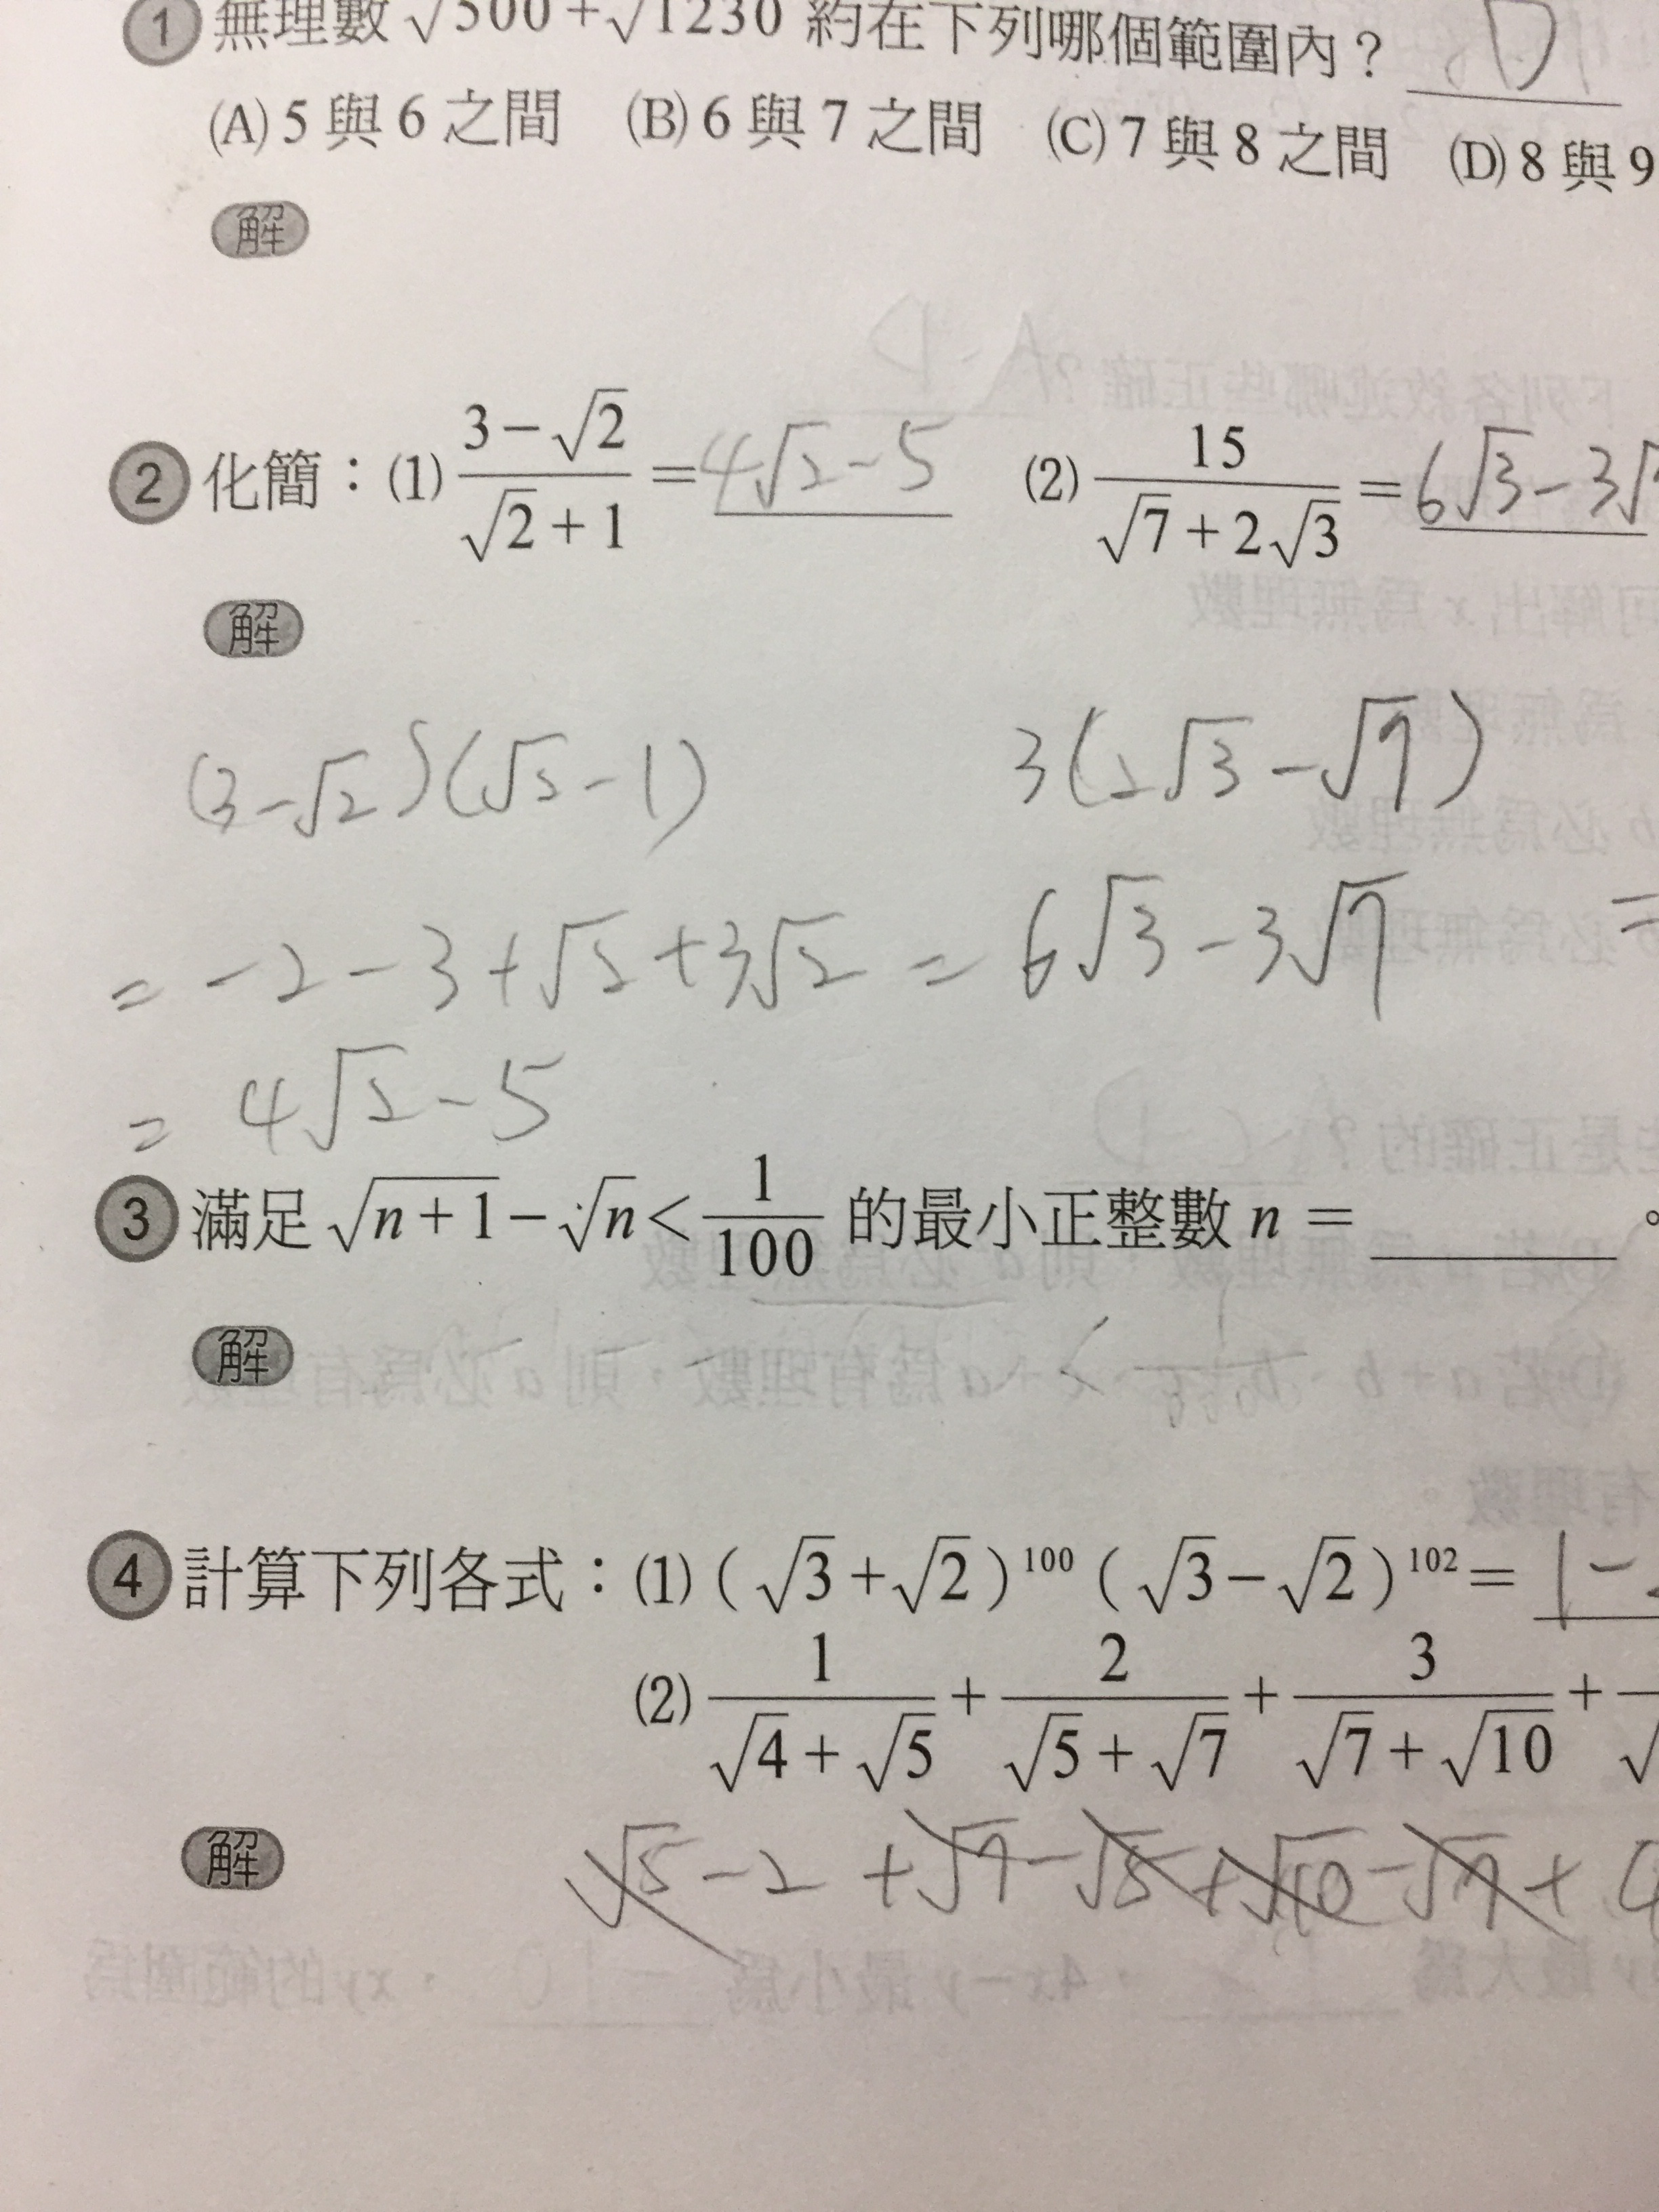 1 無理數 √500+√1230 約在下列哪個範圍內? D
(A) 5 與 6 之間 (B) 6 與 7 之間 (C) 7 與 8 之間 (D) 8 與 9
解
2 化簡:(1) (3-√2)/(√2+1) = 4√2-5 (2) 15/(√7+2√3) = 6√3-3√
解
(3-√2)(√2-1) 3(2√3-√7)
= -2-3+√2+3√2 = 6√3-3√7 =
= 4√2-5
3 滿足 √(n+1)-√n < 1/100 的最小正整數 n = ____。
解
4 計算下列各式:(1) (√3+√2)^100 (√3-√2)^102 = 1-
(2) 1/(√4+√5) + 2/(√5+√7) + 3/(√7+√10) +
解
√5-2+√7-√5+√10-√7+